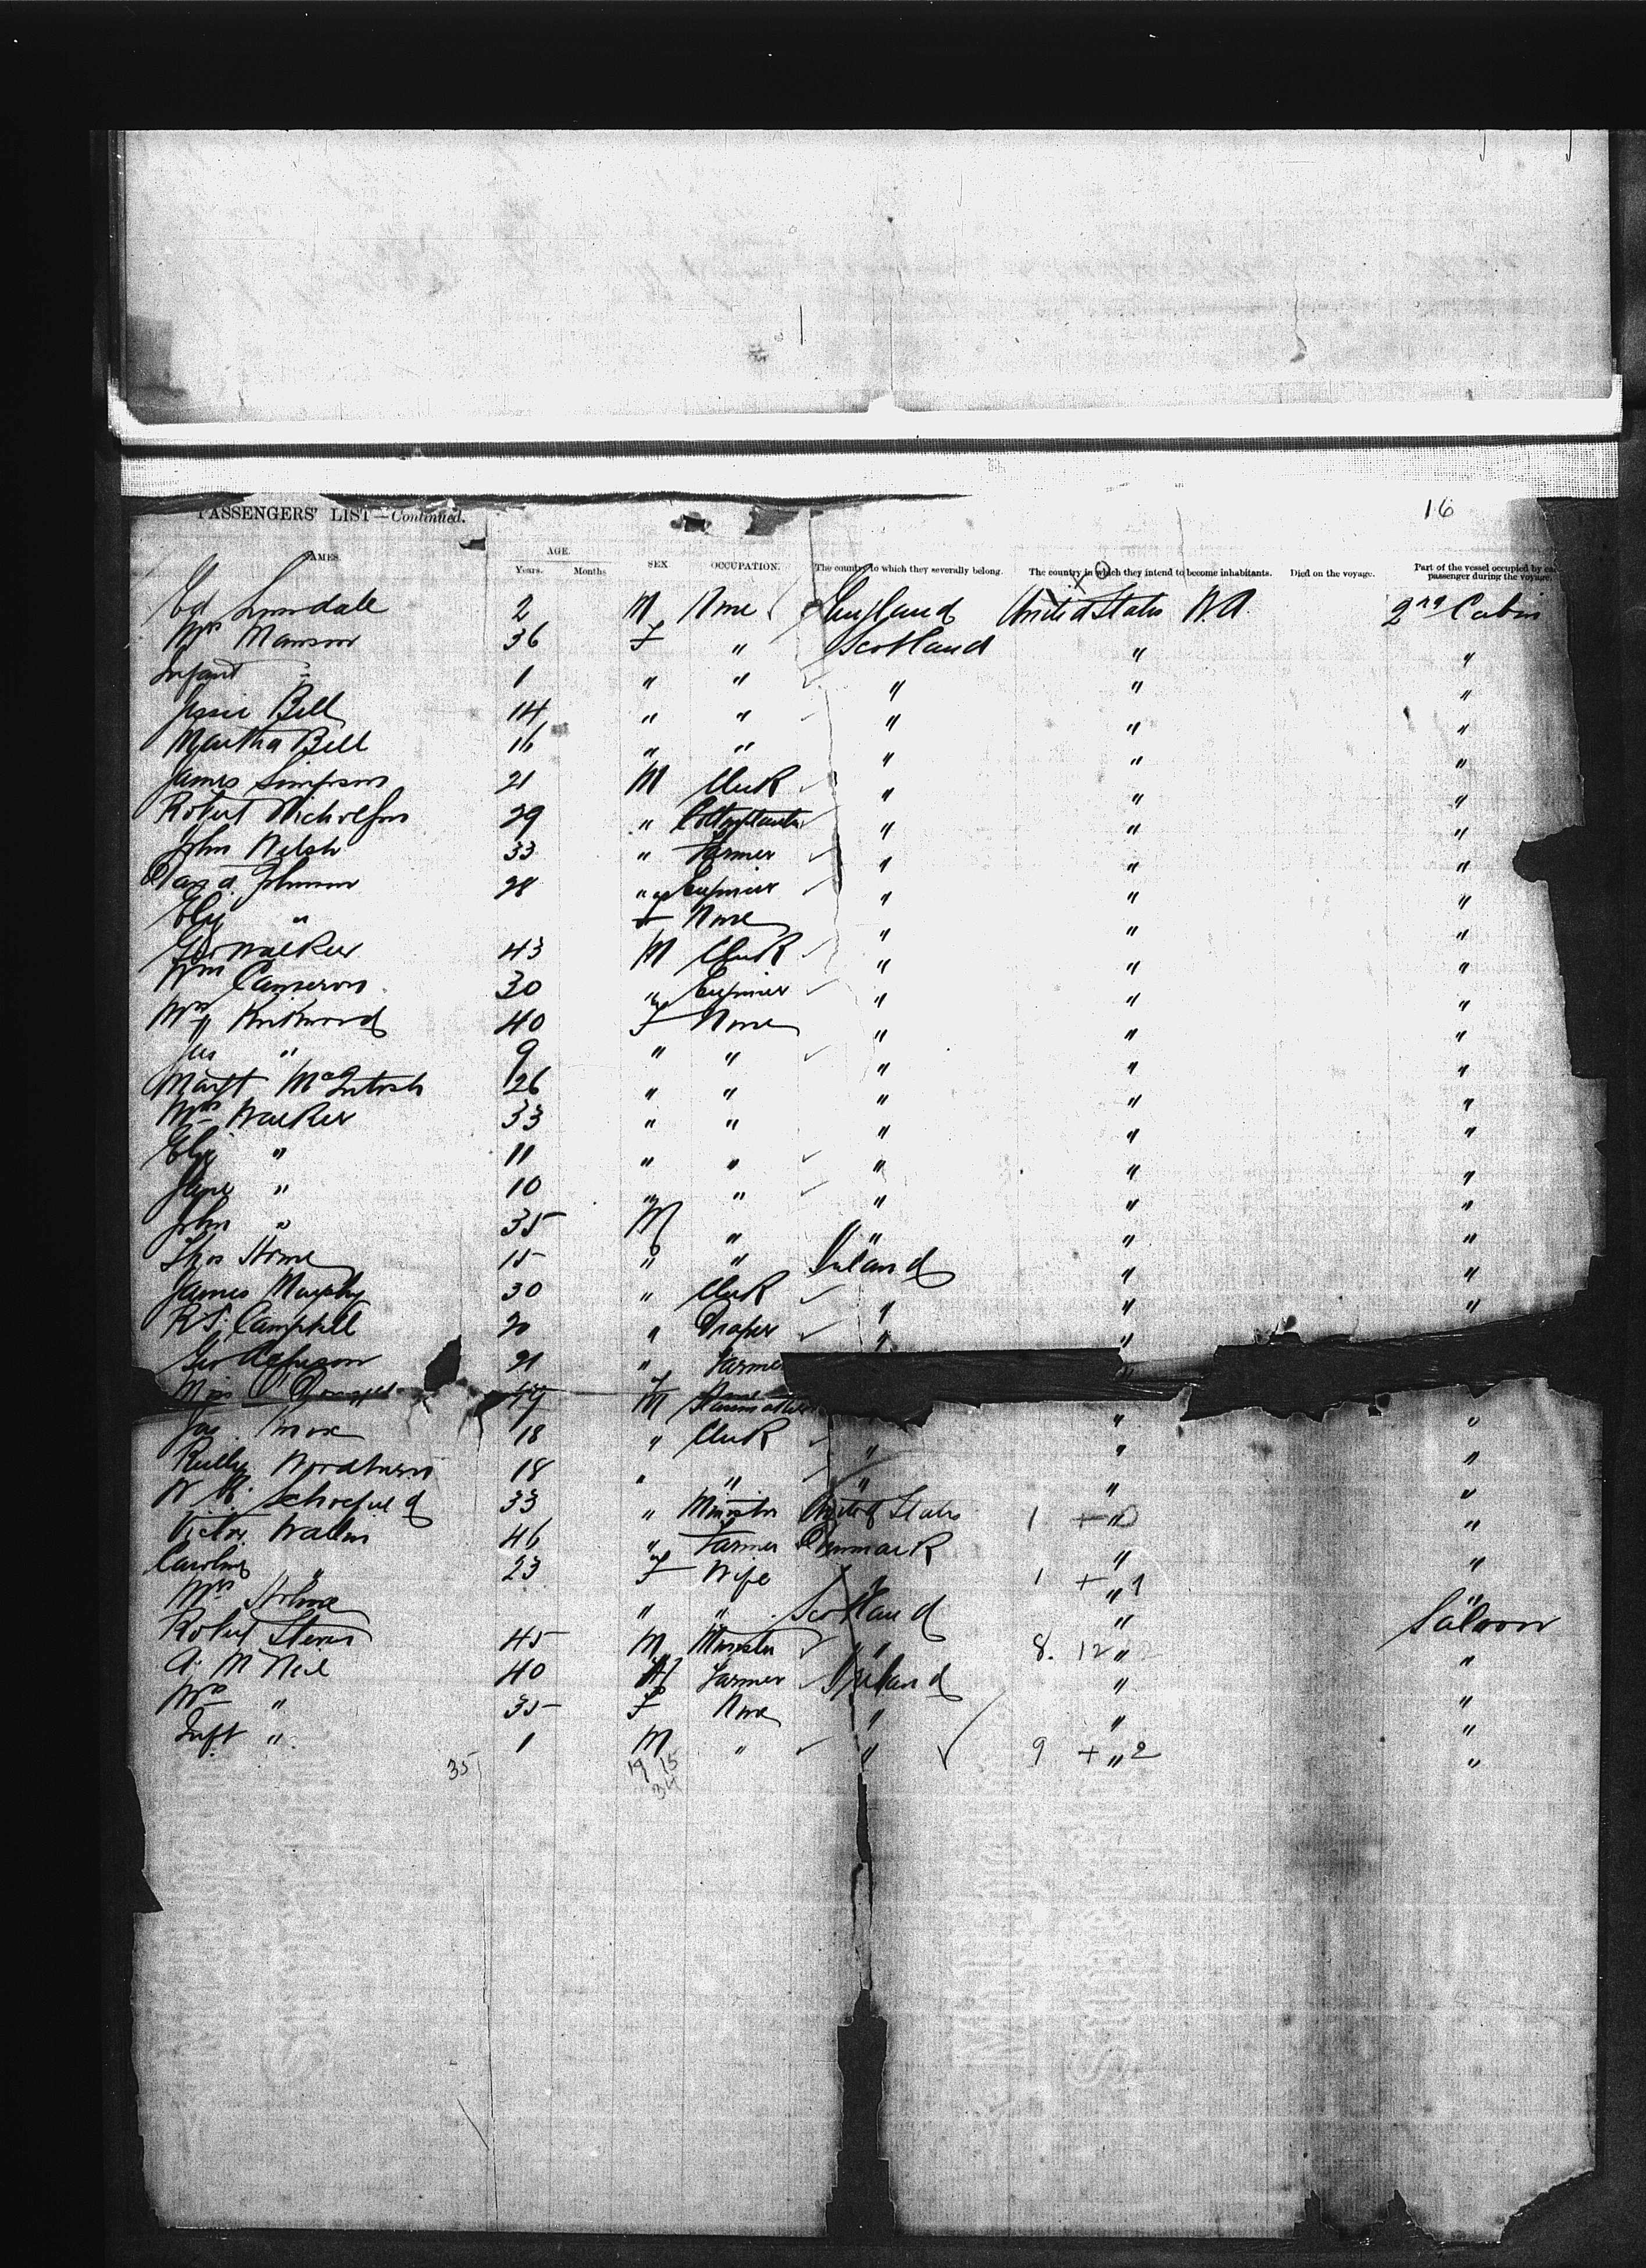 16
PASSENGERS' LIST—Continued.
AMES. AGE. Years. Months SEX OCCUPATION. The country to which they severally belong. The country in which they intend to become inhabitants. Died on the voyage. Part of the vessel occupied by passenger during the voyage.
Lonsdale 2 M None England United States N.A. 2nd Cabin
Mrs Manson 36 F " Scotland " "
Infant " 1 " " " " "
Jessie Bell 14 " " " " "
Martha Bell 16 " " " " "
James Simpson 21 M Clerk " " "
Robert Nicholson 29 " " " "
John Welsh 33 " Farmer " " "
Johnson 28 " Engineer " " "
Eliz " F None " " "
Geo Walker 43 M Clerk " " "
Wm Cameron 30 " Engineer " " "
Mrs Kirkwood 40 F None " " "
Jas " 9 " " " " "
Margt McIntosh 26 " " " " "
Mrs Walker 33 " " " " "
Eliz " 11 " " " " "
Jane " 10 " " " " "
John " 35 M " " " "
Thos 15 " " Ireland " "
James Murphy 30 " Clerk " " "
R.S. Campbell 20 " Draper " " "
Geo 21 " Farmer "
Miss M
Jas Knox 18 " Clerk " " "
Woodburn 18 " " " " "
W. Schofield 33 " Minister United States 1 + 0 " "
Victor Wallin 46 " Farmer Denmark " "
Caroline " 23 F Wife " 1 + 1 "
Mrs " " Scotland " Saloon
Robert Steven 45 M Minister " 8. 12 " 2 "
A. McNeil 40 M Farmer Ireland " "
Mrs " 35 F None " " "
Inft " 1 M " " 9 + " 2 "
35 19 15
34